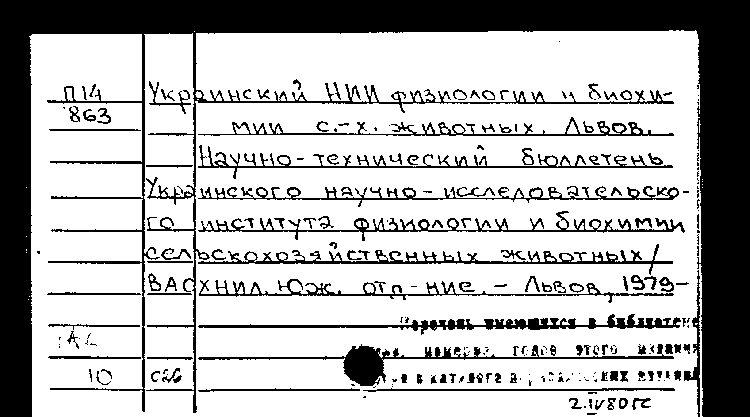 П14 Украинский НИИ физиологии и биохи-
863 мии с.-х. животных. Львов.
Научно-технический бюллетень
Украинского научно-исследовательско-
го института физиологии и биохимии
сельскохозяйственных животных /
ВАСХНИЛ. Юж. отд-ние. - Львов, 1979-
Перечень имеющихся в библиотеке
номеров, годов этого издания
в каталоге
10 с26
2.IV80